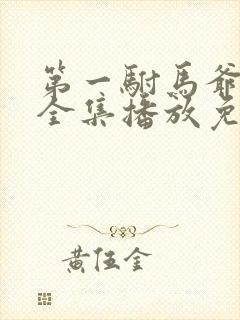 第一駙馬爺
全集播放免
黃伍金